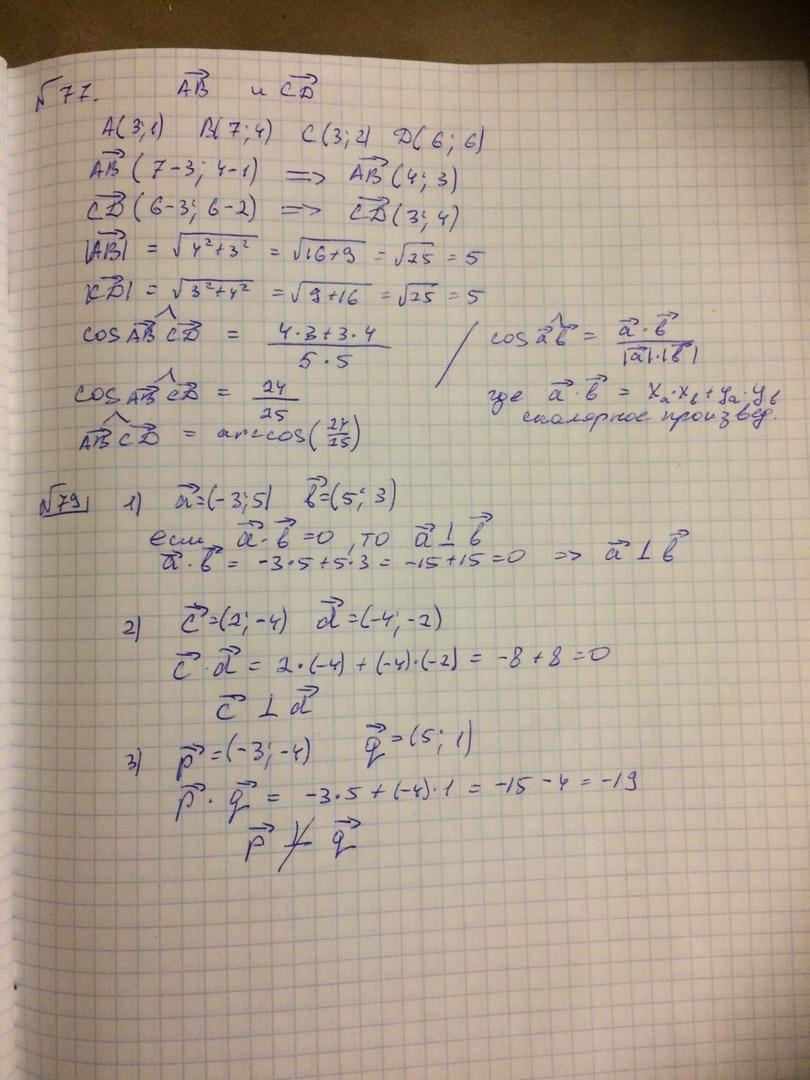 №77. AB⃗ и CD⃗
A(3;1) B(7;4) C(3;2) D(6;6)
AB⃗ (7-3; 4-1) => AB⃗ (4; 3)
CD⃗ (6-3; 6-2) => CD⃗ (3; 4)
|AB⃗| = √(4²+3²) = √(16+9) = √25 = 5
|CD⃗| = √(3²+4²) = √(9+16) = √25 = 5
cos AB⃗ ^ CD⃗ = (4·3+3·4)/(5·5) / cos a⃗ ^ b⃗ = (a⃗ · b⃗)/(|a⃗|·|b⃗|)
cos AB⃗ ^ CD⃗ = 24/25 где a⃗ · b⃗ = xₐ·x_b + yₐ·y_b
скалярное произвед.
AB⃗ ^ CD⃗ = arccos(24/25)
№79 1) a⃗=(-3;5) b⃗=(5; 3)
если a⃗·b⃗=0, то a⃗ ⊥ b⃗
a⃗·b⃗ = -3·5+5·3 = -15+15=0 => a⃗ ⊥ b⃗
2) c⃗=(2;-4) d⃗=(-4;-2)
c⃗·d⃗ = 2·(-4)+(-4)·(-2) = -8+8=0
c⃗ ⊥ d⃗
3) p⃗=(-3;-4) q⃗=(5; 1)
p⃗·q⃗ = -3·5+(-4)·1 = -15-4=-19
p⃗ ⊥̸ q⃗